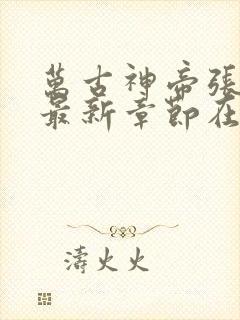 萬古神帝張
最新章節在
濤火火